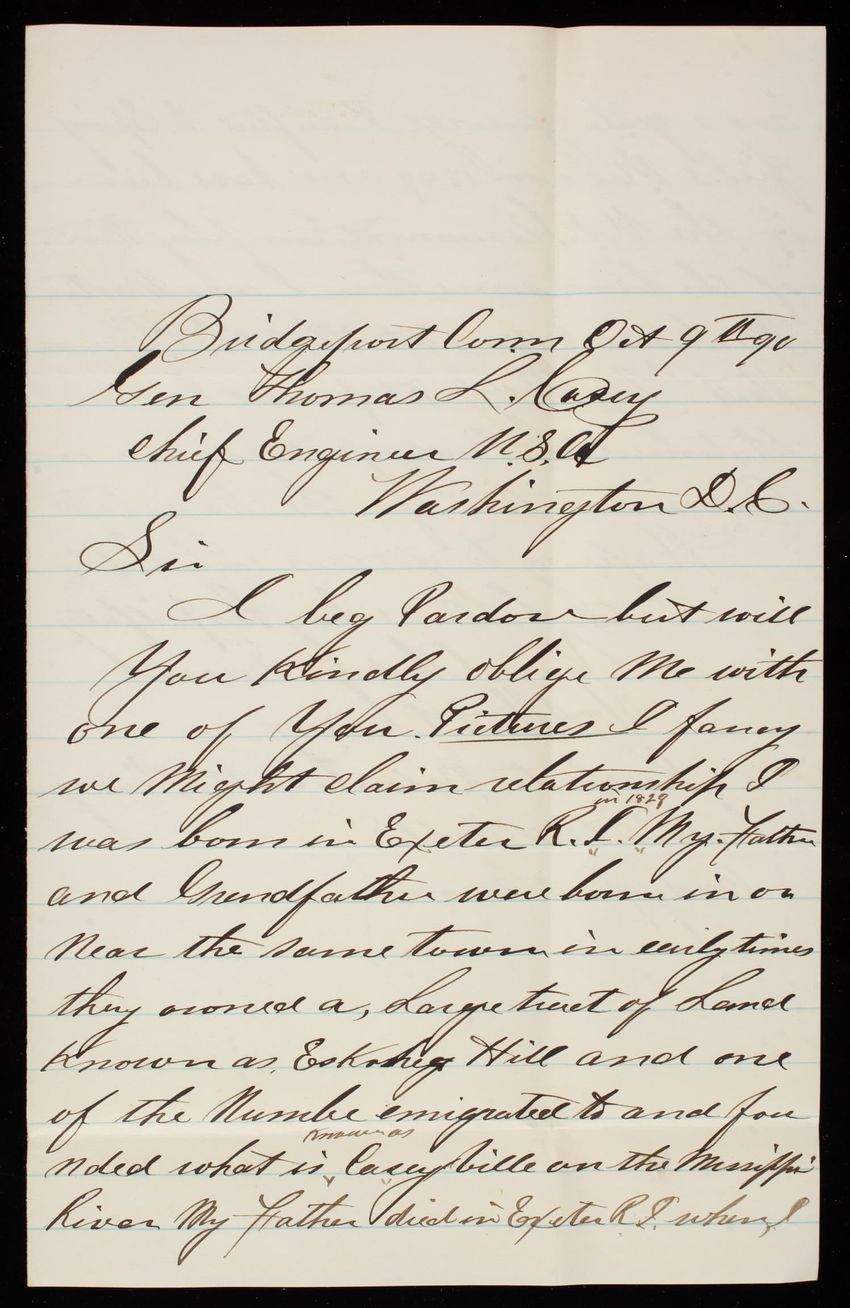 Bridgeport Conn Oct 9th 90
Gen Thomas L. Casey
Chief Engineer U.S.A
Washington D.C.
Sir
I beg Pardon but will
You Kindly oblige Me with
one of Your Pictures I fancy
we Might claim relationship I
in 1829
was born in Exeter R.I. My Father
and Grandfather were born in or
Near the same town in early times
they owned a, Large tract of Land
Known as Hill and one
of the Numbe emigrated to and fou
known as
nded what is Caseyville on the Mississippi
River My Father died in Exeter R.I. when I